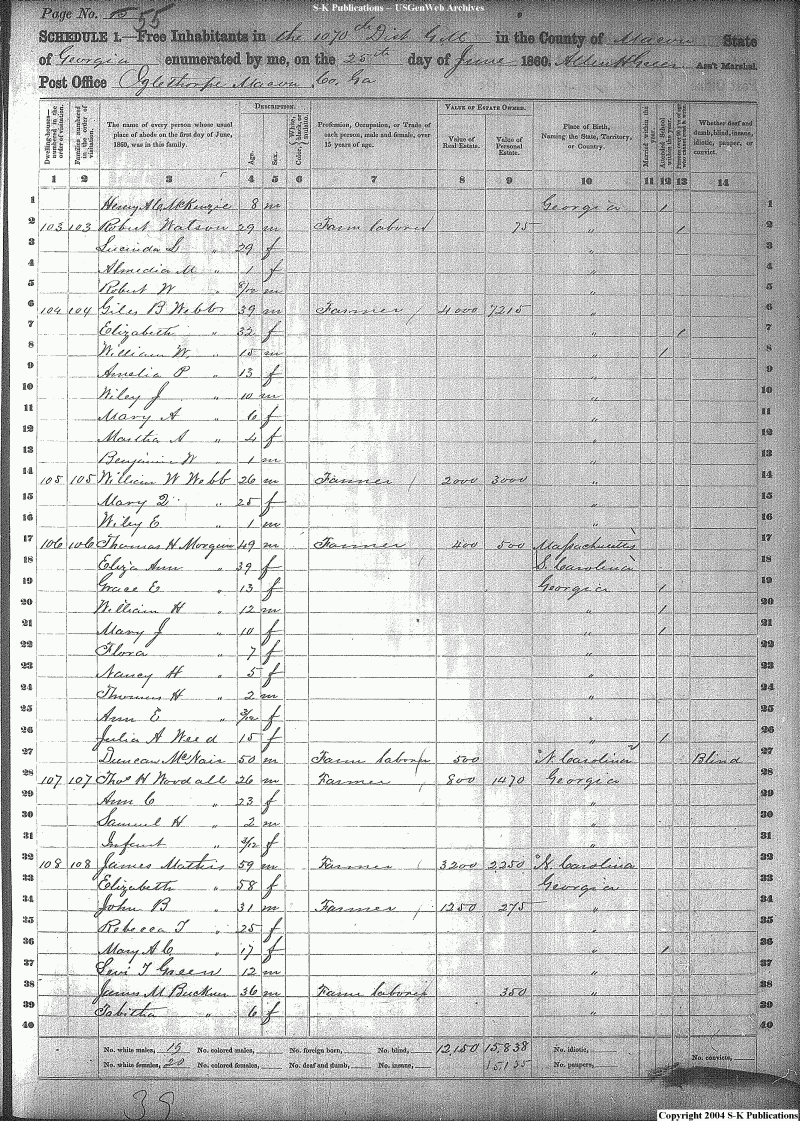 S-K Publications – USGenWeb Archives
Page No. 55
SCHEDULE 1.—Free Inhabitants in the 1070th Dist G.M. in the County of Macon State
of Georgia enumerated by me, on the 25th day of June 1860. Ass't Marshal.
Post Office Oglethorpe Macon Co. Ga
Dwelling-houses—numbered in the order of visitation.
Families numbered in the order of visitation.
The name of every person whose usual place of abode on the first day of June, 1860, was in this family.
DESCRIPTION.
Age.
Sex.
Color, White, black, or mulatto.
Profession, Occupation, or Trade of each person, male and female, over 15 years of age.
VALUE OF ESTATE OWNED.
Value of Real Estate.
Value of Personal Estate.
Place of Birth, Naming the State, Territory, or Country.
Married within the year.
Attended School within the year.
Whether deaf and dumb, blind, insane, idiotic, pauper, or convict.
1 2 3 4 5 6 7 8 9 10 11 12 13 14
1 Henry A C McKenzie 8 m Georgia / 1
2 103 103 Robert Watson 29 m Farm laborer 75 " / 2
3 Lucinda S " 29 f " 3
4 Almedia M " 1 f " 4
5 Robert W " 8/12 m " 5
6 104 104 Giles B Webb 39 m Farmer / 4000 7215 " 6
7 Elizabeth " 32 f " / 7
8 William W. " 15 m " / 8
9 Amelia P " 13 f " 9
10 Wiley J " 10 m " 10
11 Mary A " 6 f " 11
12 Martha A " 4 f " 12
13 Benjamin W 1 m " 13
14 105 105 William W Webb 26 m Farmer / 2000 3000 " 14
15 Mary Q " 25 f " 15
16 Wiley E " 1 m " 16
17 106 106 Thomas H Morgan 49 m Farmer 400 500 Massachusetts 17
18 Eliza Ann " 39 f / S. Carolina 18
19 Grace E " 13 f Georgia / 19
20 William H " 12 m " / 20
21 Mary J " 10 f " / 21
22 Flora " 7 f " 22
23 Nancy H " 5 f " 23
24 Thomas H " 2 m " 24
25 Ann E " 3/12 f " 25
26 Julia A Weed 15 f " / 26
27 Duncan McNair 50 m Farm labor 500 N. Carolina Blind 27
28 107 107 Thos H Woodall 26 m Farmer / 800 1470 Georgia 28
29 Ann C " 23 f " 29
30 Samuel H " 2 m " 30
31 Infant " 3/12 f " 31
32 108 108 James Mathis 59 m Farmer / 3200 2,250 N. Carolina 32
33 Elizabeth " 58 f Georgia 33
34 John B " 31 m Farmer / 1250 275 " 34
35 Rebecca T " 25 f " 35
36 Mary A C " 17 f " / 36
37 Levi T Green 12 m " 37
38 James M Buckner 36 m Farm laborer 350 " 38
39 Tabitha " 6 f " 39
40 40
No. white males, 19 No. colored males, No. foreign born, No. blind, 12,150 15,838 No. idiotic,
No. white females, 20 No. colored females, No. deaf and dumb, No. insane, 15,135 No. paupers, No. convicts,
39
Copyright 2004 S-K Publications